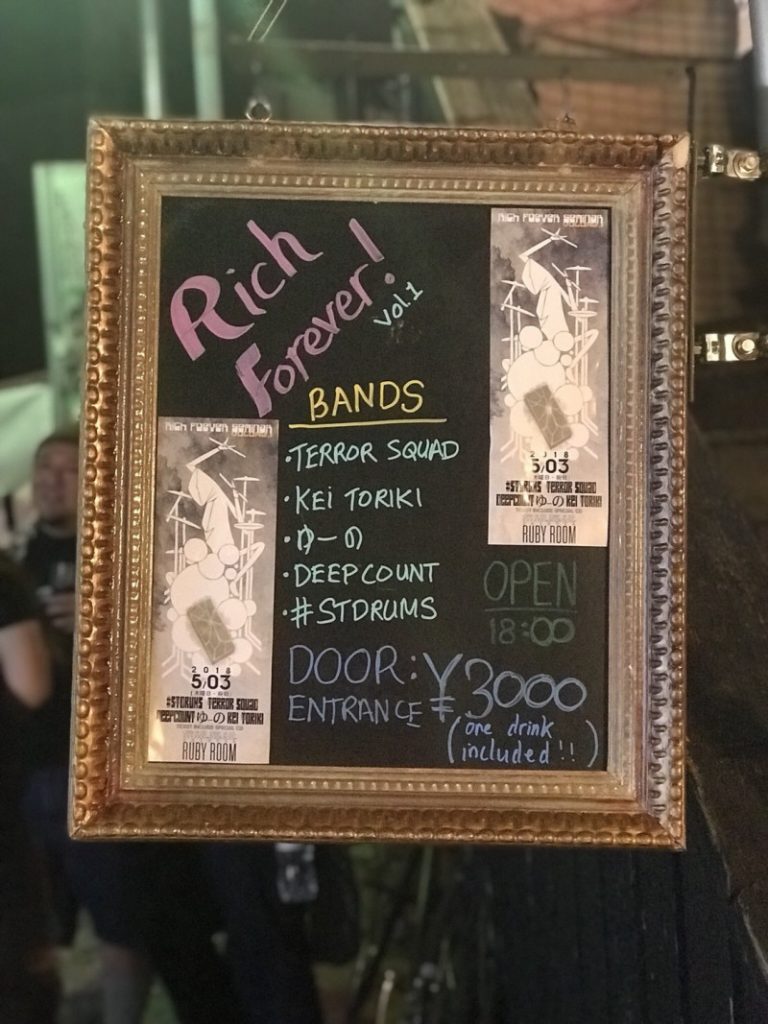 Rich
Forever!
Vol.1
BANDS
·TERROR SQUAD
·KEI TORIKI
·ゆーの
·DEEPCOUNT
·#STDRUMS
OPEN
18:00
DOOR: ¥3000
ENTRANCE
(one drink
included!!)
2018
5/03
#STDRUMS TERROR SQUAD
DEEPCOUNT ゆーの KEI TORIKI
RUBY ROOM
2018
5/03
#STDRUMS TERROR SQUAD
DEEPCOUNT ゆーの KEI TORIKI
RUBY ROOM